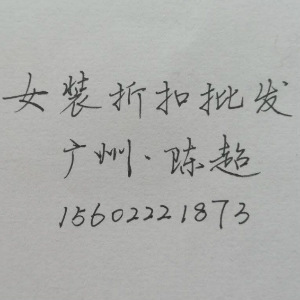 女装折扣批发
广州·陈超
15602221873